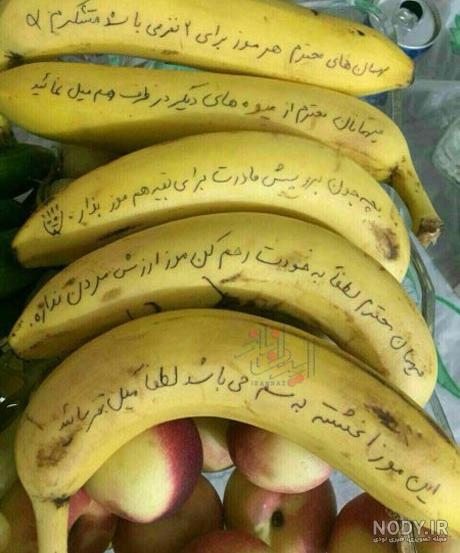 مهمان های محترم هر موز برای ۲ نفر می باشد متشکرم
میهمانان محترم از میوه های دیگر در ظرف هم میل نمائید
بچه جون برو پیش مادرت برای بقیه هم موز بذار.
مهمان محترم لطفاً به خودت رحم کن موز ارزش مردن نداره.
این موز آغشته به سم می باشد لطفاً میل نفرمائید
ایران ناز
IRANNAZ
NODY.IR
مجله تصویری، هنری نودی